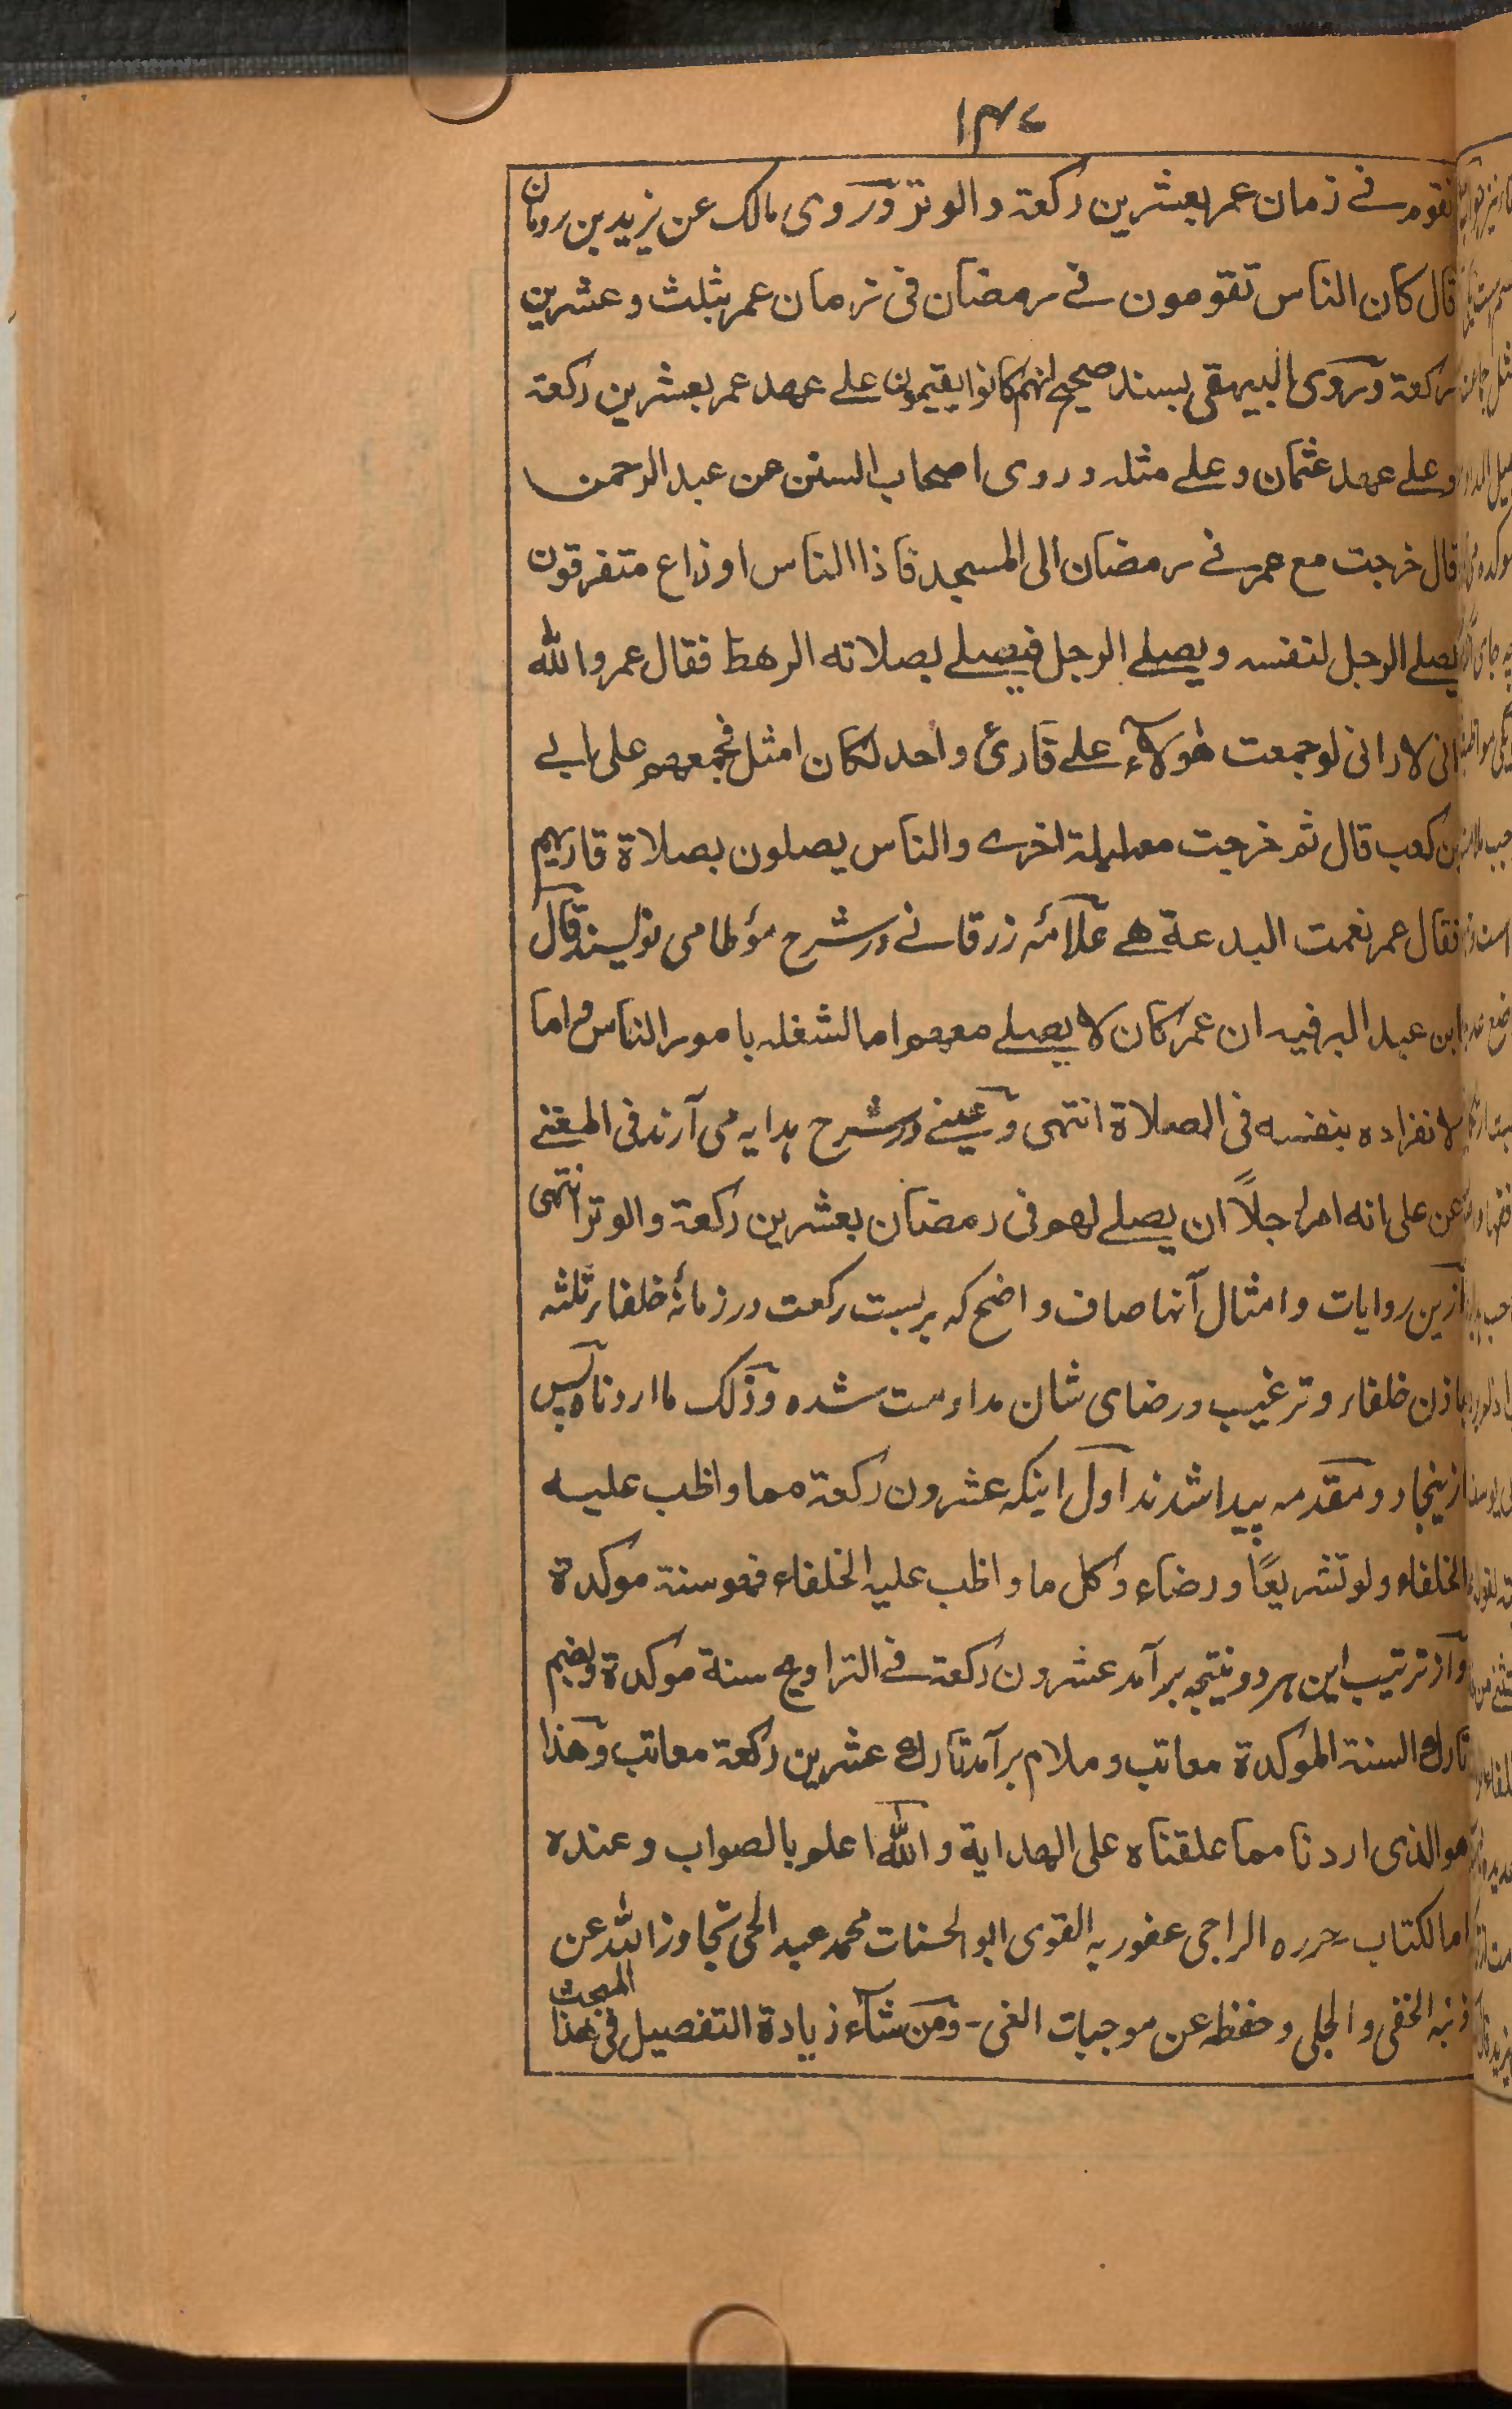 ۱۴۷
نقوم فے زمان عمر بعشرین رکعة والوتر وروی مالک عن یزید بن رومان
قال کان الناس تقومون فے رمضان فی زمان عمر بثلث وعشرین
رکعة وروی البیہقی بسند صحیح انہم کانوا یقیمون علے عھد عمر بعشرین رکعة
وعلے عھد عثمان وعلے مثلہ وروی اصحاب السنن عن عبد الرحمن
قال خرجت مع عمر فے رمضان الی المسجد فاذا الناس اوزاع متفرقون
یصلے الرجل لنفسہ ویصلے الرجل فیصلے بصلاتہ الرھط فقال عمر واللہ
انی لارانی لو جمعت ھؤلاء علے قارئ واحد لکان امثل فجمعھم علی ابے
بن کعب قال ثم خرجت معہ لیلة اخرے والناس یصلون بصلاة قاریہم
فقال عمر نعمت البدعة ھے علامہ زرقانے در شرح مؤطا می نویسند قال
ابن عبد البر فیہ ان عمر کان لا یصلے معھم اما لشغلہ بامور الناس واما
لانفرادہ بنفسہ فی الصلاة انتہی وعینے در شرح ہدایہ می آرند فی المغنے
عن علی انہ امر رجلاً ان یصلے لھم فی رمضان بعشرین رکعة والوتر انتہی
ازین روایات وامثال آنہا صاف واضح کہ بر بست رکعت در زمانۂ خلفاء ثلثہ
باذن خلفاء وترغیب ورضای شان مداومت شدہ وذلک ما اردناہ پس
ازینجا دو مقدمہ پیدا شدند اول اینکہ عشرون رکعة مما واظب علیہ
الخلفاء ولو تشریعًا ورضاء وکل ما واظب علیہ الخلفاء فھو سنة موکدة
واز ترتیب این ہر دو نتیجہ بر آمد عشرون رکعة فے التراویح سنة موکدة وبضم
تارک السنة الموکدة معاتب وملام بر آمد تارک عشرین رکعة معاتب وھذا
ھو الذی اردنا مما علقناہ علی الھدایة واللہ اعلم بالصواب وعندہ
ام الکتاب - حررہ الراجی عفو ربہ القوی ابو الحسنات محمد عبد الحی تجاوز اللہ عن
ذنبہ الخفی والجلی وحفظہ عن موجبات الغی - ومن شآء زیادة التفصیل فی ھذا المبحث